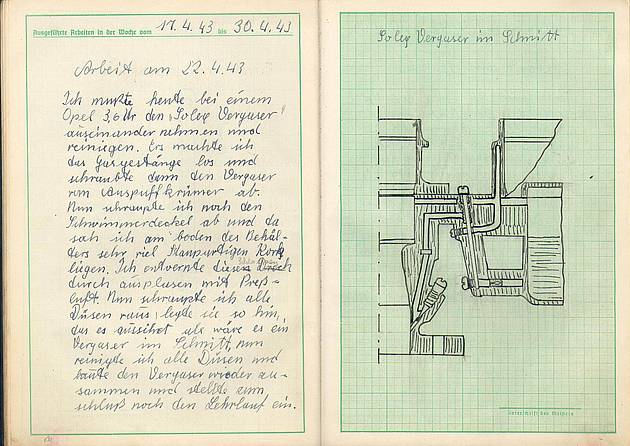 Ausgeführte Arbeiten in der Woche vom 17.4.43 bis 30.4.43
Arbeit am 22.4.43
Ich mußte heute bei einem
Opel 3,6 ltr den „Solex Vergaser"
auseinander nehmen und
reinigen. Ers machte ich
das Gasgestänge los und
schraubte dann den Vergaser
vom Auspuffkrümer ab.
Nun schraupte ich noch den
Schwimmerdeckel ab und da
sah ich am boden des Behäl-
ters sehr viel Staupartigen
liegen. Ich entvernte diesen
durch ausplasen mit Preß-
luft. Nun schraupte ich alle
Düsen raus, legte sie so hin,
das es aussihet als wäre es ein
Vergaser im Schnitt, nun
reinigte ich alle Düsen und
baute den Vergaser wieder zu-
sammen und stellte zum
schluß noch den Lehrlauf ein.
Solex Vergaser im Schnitt
Unterschrift des Meisters